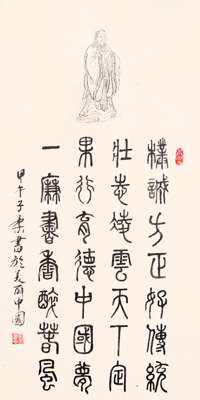 樸誠方正好傳統
壯志凌雲天下定
果行育德中國夢
一廉書香醉春風
甲午子書於美丽中國